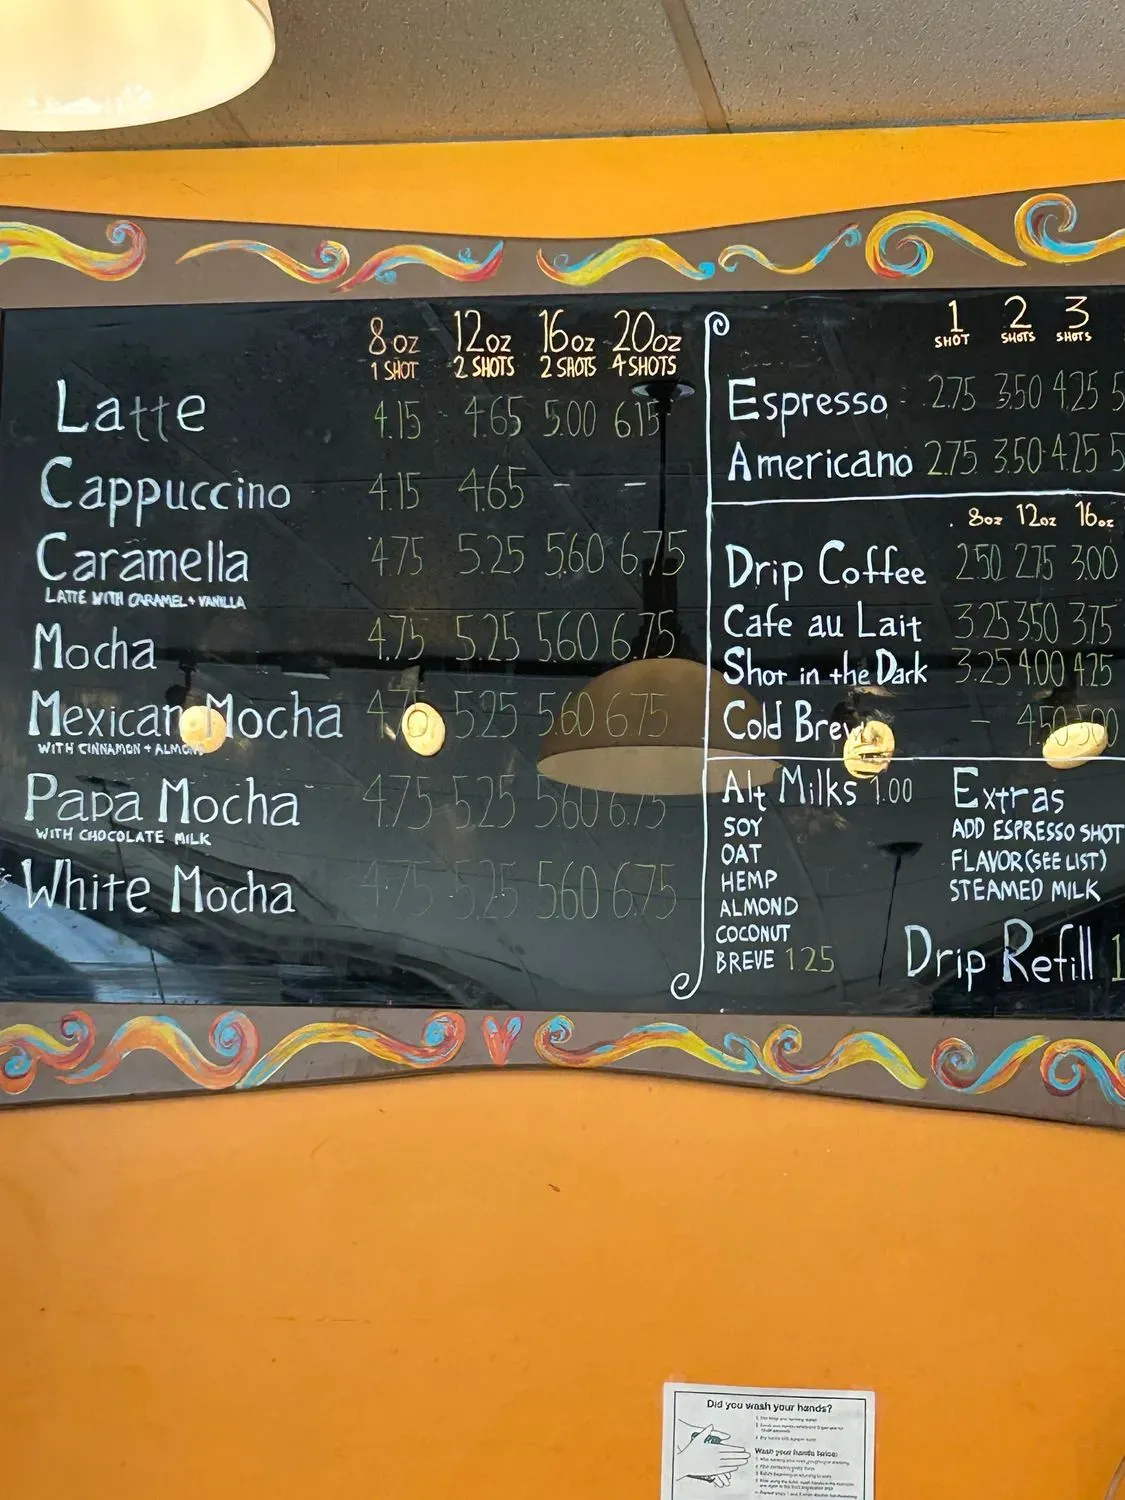 8oz 12oz 16oz 20oz
1 SHOT 2 SHOTS 2 SHOTS 4 SHOTS
Latte 4.15 4.65 5.00 6.15
Cappuccino 4.15 4.65 - -
Caramella 4.75 5.25 5.60 6.75
LATTE WITH CARAMEL + VANILLA
Mocha 4.75 5.25 5.60 6.75
Mexican Mocha 4.75 5.25 5.60 6.75
WITH CINNAMON + ALMOND
Papa Mocha 4.75 5.25 5.60 6.75
WITH CHOCOLATE MILK
White Mocha 4.75 5.25 5.60 6.75
1 2 3
SHOT SHOTS SHOTS
Espresso 2.75 3.50 4.25 5
Americano 2.75 3.50 4.25 5
8oz 12oz 16oz
Drip Coffee 2.50 2.75 3.00
Cafe au Lait 3.25 3.50 3.75
Shot in the Dark 3.25 4.00 4.25
Cold Brew - 4.50 5.00
Alt Milks 1.00
SOY
OAT
HEMP
ALMOND
COCONUT
BREVE 1.25
Extras
ADD ESPRESSO SHOT
FLAVOR (SEE LIST)
STEAMED MILK
Drip Refill 1
Did you wash your hands?
Wash your hands twice: